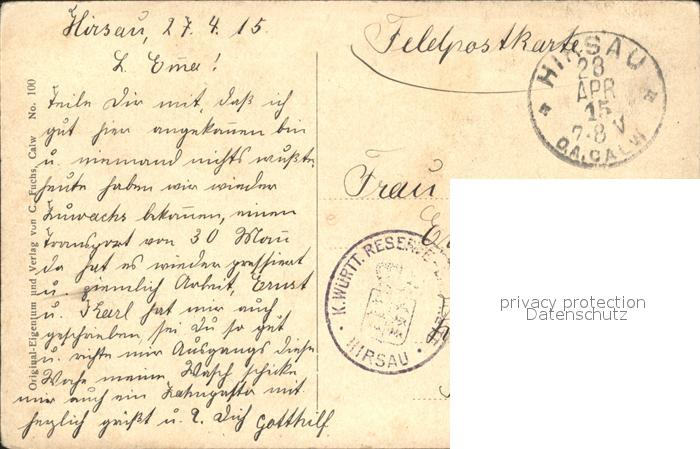 Hirsau, 27.4.15.
L. Em̄a!
Teile Dir mit, daß ich
gut hier angekom̄en bin
u. niemand nichts wußte.
heute haben wir wieder
Zuwachs bekom̄en, einen
Transport von 30 Man̄
da hat es wieder pressiert
u. ziemlich Arbeit, Ernst
u. Karl hat mir auch
geschrieben, sei Du so gut
u. richte mir Ausgangs diese
Woche meine Wasch schicke
mir auch ein Zahnpasta mit
herzlich grüßt u. Dich Gotthilf.
Original-Eigentum und Verlag von C. Fuchs, Calw No. 100
Feldpostkarte
HIRSAU
28
APR
15
7-8 V
O.A. CALW
Frau
K. WÜRTT. RESERVE
HIRSAU
privacy protection
Datenschutz